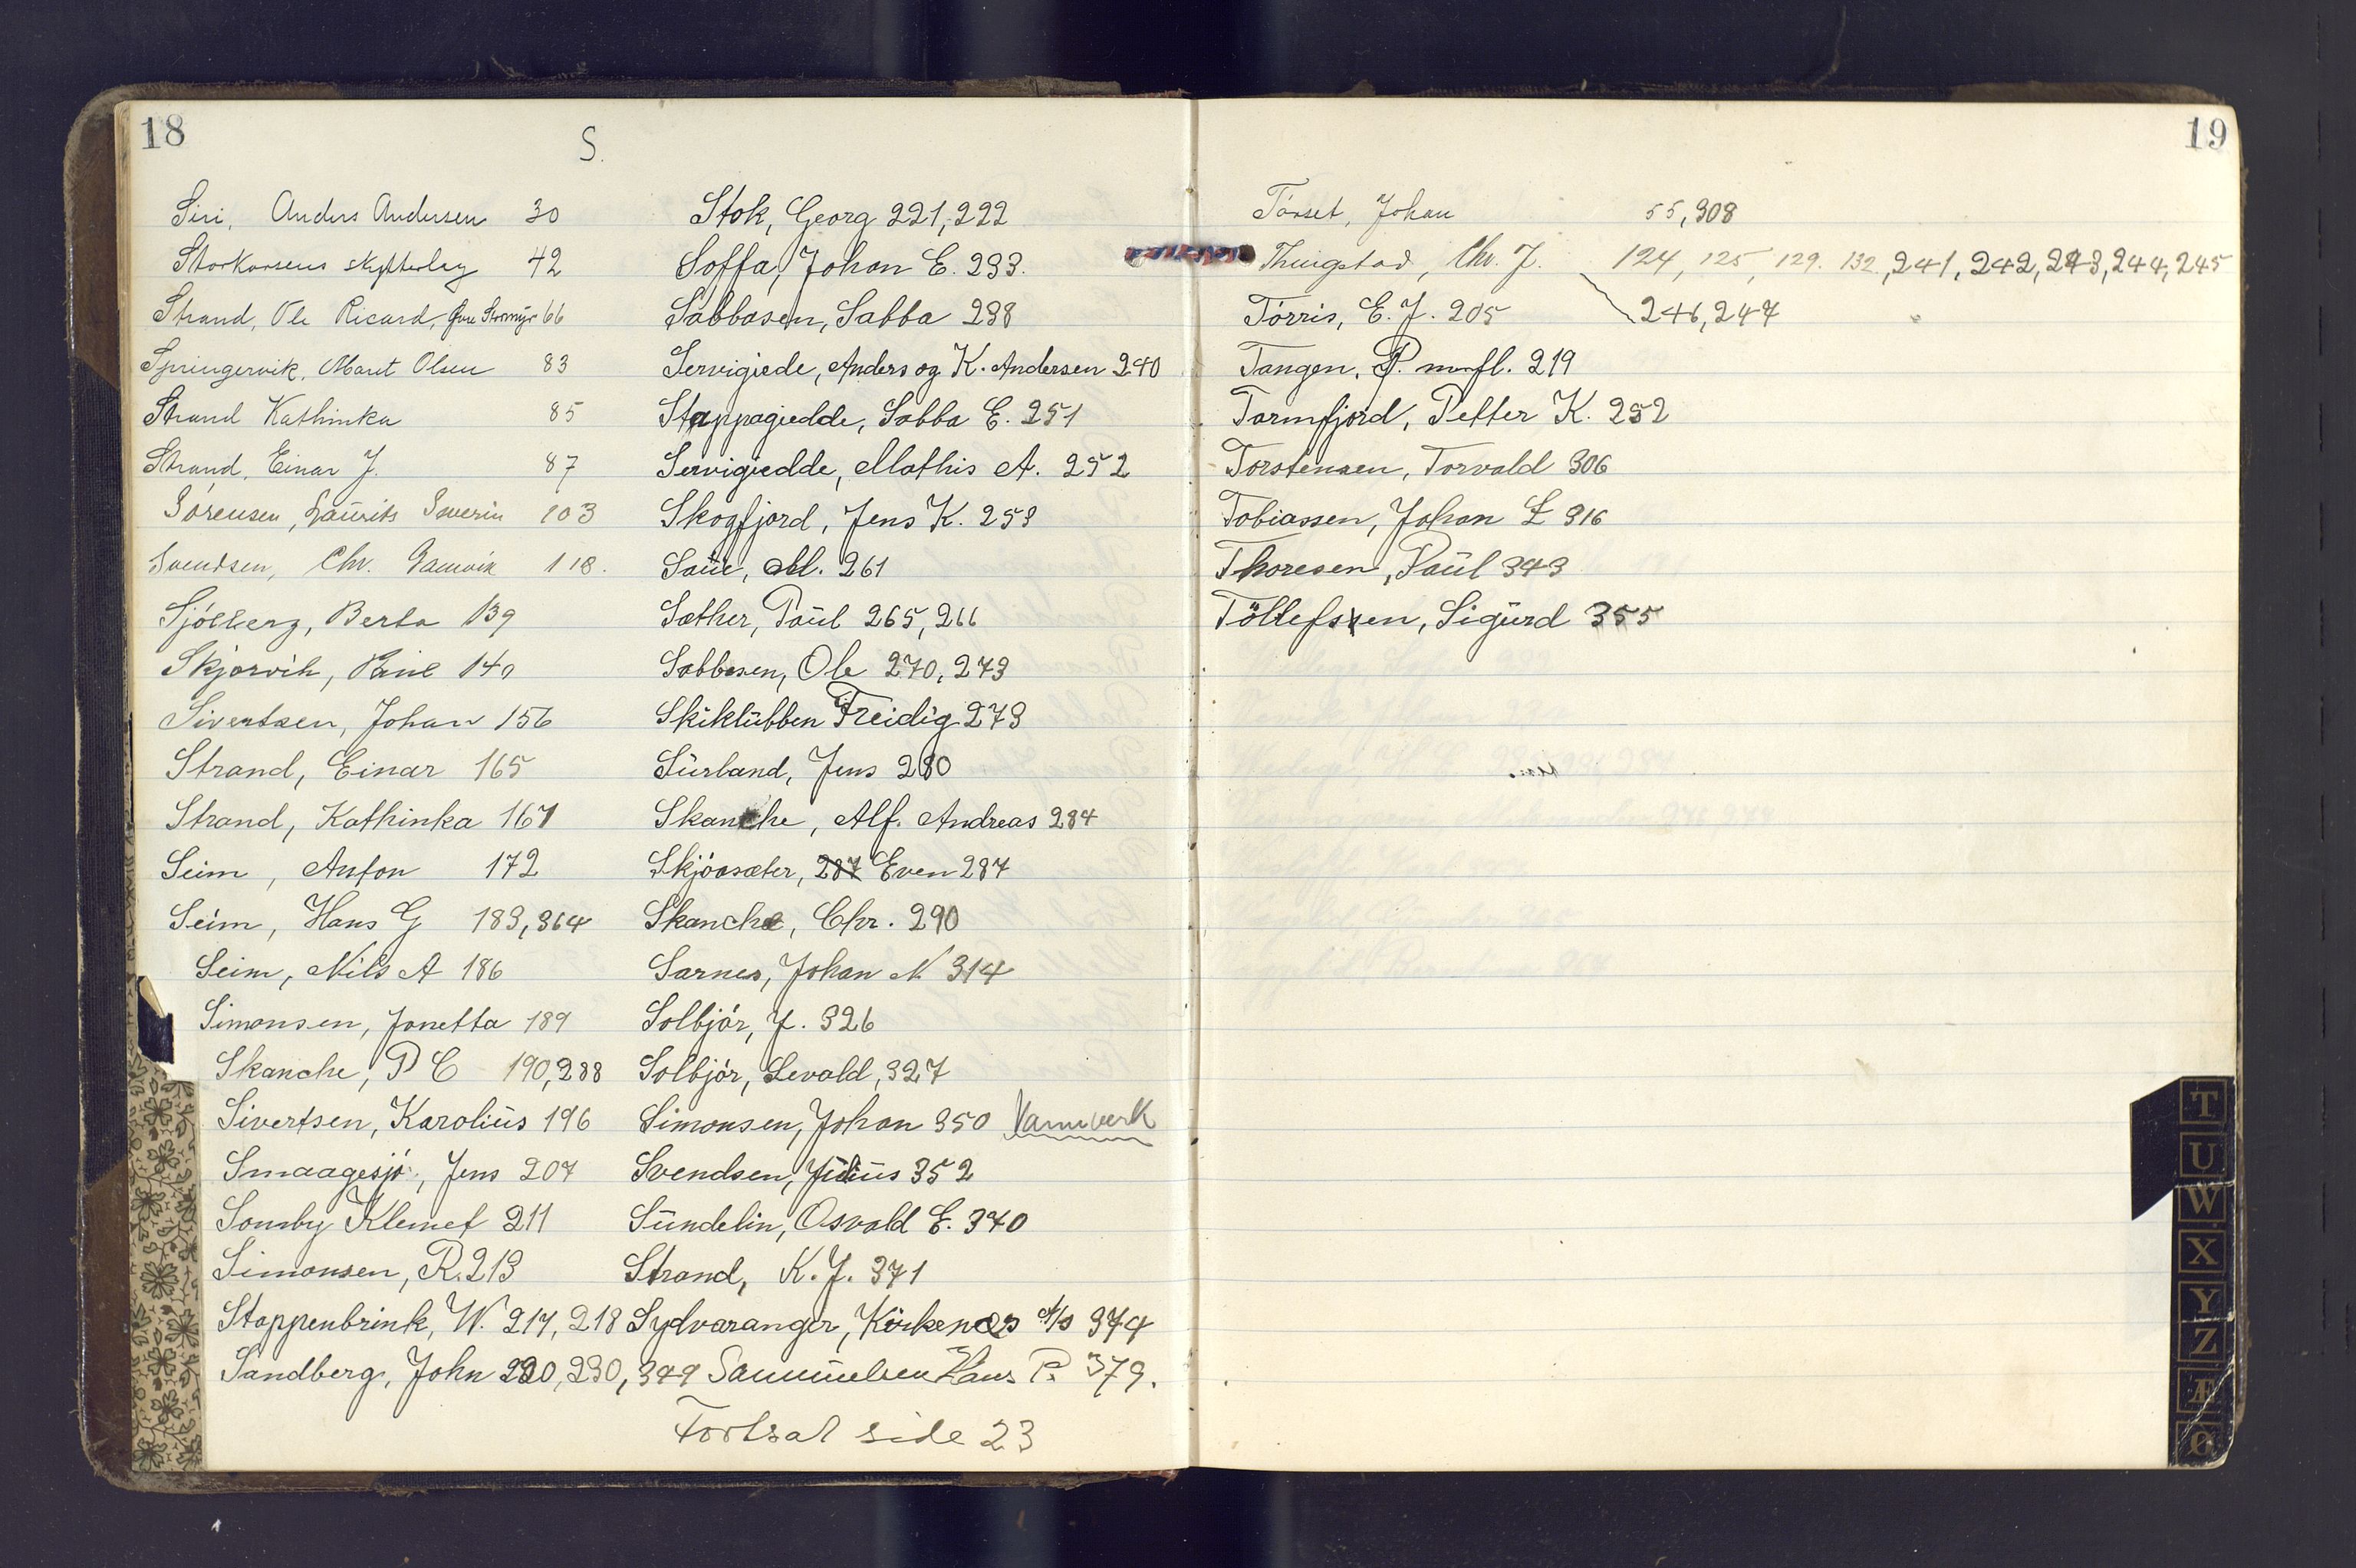 18
S.
Siri, Anders Andersen 30
Storkorsens skytterlag 42
Strand, Ole Ricard, Øvre Stormyr 66
Springervik, Marit Olsen 83
Strand Kathinka 85
Strand, Einar J. 87
Sörensen, Laurits Severin 103
Svendsen, Chr. Gamvik 118.
Sjölberg, Berta 139
Skjorvik, Paul 140
Sivertsen, Johan 156
Strand, Einar 165
Strand, Kathinka 167
Seim, Anton 172
Seim, Hans G 183, 364
Seim, Nils A 186
Simonsen, Jonetta 189
Skanche, P C 190, 288
Sivertsen, Karolius 196
Smaagesjö, Jens 207
Somby Klemet 211
Simonsen, R. 213
Stoppenbrink, W. 217, 218
Sandberg, John 220, 230, 349
Stok, Georg 221, 222
Soffa, Johan E. 233.
Sabbasen, Sabba 238
Servigiede, Anders og K. Andersen 240
Stappagiedde, Sabba E. 251
Servigiedde, Mathis A. 252
Skogfjord, Jens K. 253
Saue, M. 261
Sæther, Paul 265, 266
Sabbasen, Ole 270, 273
Skiklubben Freidig 273
Surland, Jens 280
Skanche, Alf. Andreas 284
Skjåsæter, 287 Even 287
Skanche, Chr. 290
Sarnes, Johan N 314
Solbjör, J. 326
Solbjör, Levald, 327
Simonsen, Johan 350 Vannverk
Svendsen, Julius 352
Sundelin, Osvald E. 370
Strand, K. J. 371
Sydvaranger, Kirkenes A/S 374
Samuelsen Hans P. 379.
Fortsat side 23
19
Törset, Johan 55, 308
Thingstad, Chr. J. 124, 125, 129. 132, 241, 242, 243, 244, 245
Törris, E. J. 205 246, 247
Tangen, P. m. fl. 219
Tarmfjord, Petter K. 252
Torstensen, Torvald 306
Tobiassen, Johan L 316
Thoresen, Paul 343
Tollefsen, Sigurd 355
T
U
W
X
Y
Z
Æ
Ø